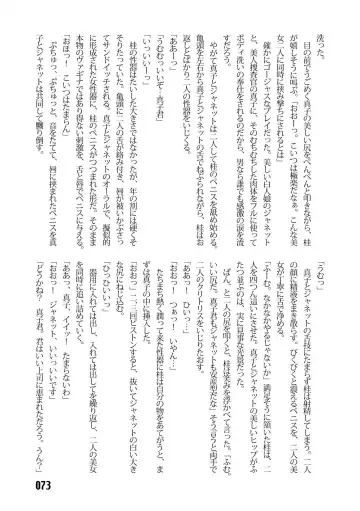 洗った。
目の前でうごめく真子の美しい尻をぺんぺんと叩きながら、桂
が嬉しそうに叫ぶ。「おおーっ。こいつは極楽だなぁ。こんな美
女二人に同時に挟み撃ちされるとは」
確かにゴージャスなプレイだった。美しい白人娘のジャネット
と、美人捜査官の真子に、そのむちむちした肉体をフルに使って
ボディ洗いの奉仕をされるのだから、男なら誰でも感激の涙を流
すだろう。
やがて真子とジャネットは二人して桂のペニスを舐め始める。
亀頭を左右から真子とジャネットの舌でねぶられながら、桂はお
返しとばかり二人の性器をいじくる。
「ああーっ」
「うむむいいぞ！真子君」
「いっいいーっ」
桂の性器はたいした大きさではなかったが、年の割には硬くそ
そりたっていた。亀頭に二人の舌が絡み付き、唇が絡いかぶさっ
てサンドイッチされる。真子とジャネットのオーラルで、擬似的
に形成された女性器に、桂のペニスがつつまれた形だ。そのまま
本物のヴァギナではあり得ない刺激を、舌と唇でペニスに与える。
「おほっ！　こいつはたまらん」
ぶちゅっ、ぶちゅっと、音をたてて、唇に挟まれたペニスを真
子とジャネットは共同して擦り倒す。
「うむっ」
真子とジャネットの舌技にたまらず桂は射精してしまう。二人
の顔に精液をまき散らす。びくびくと震えるペニスを、二人の美
女が丁寧に舌で浄める。
「すむ。なかなかやるじゃないか」満足そうに笑った桂は、二
人を四つん這いにさせた。真子とジャネットの美しいヒップがふ
たつ並ぶそのさまは、実に見事な光景だった。
ぱん、と二人の尻を叩くと、桂は笑みを浮かべて言った。「ふむ。
いい尻だ。真子君もジャネットも安産型だな」そう言うと両手で
二人のクリトリスをいじりたおす。
「ああっ　ひいっ…」
「おおっ！　つぁっ！　いやん…」
たちまち熱く潤って来た性器に桂は自分の物をあてがうと、ま
ずは真子の中に挿入した。
「おおっ」二、三回ピストンすると、抜いてジャネットの白い大き
な尻にねじ込む。
「ひっひいいっ」
器用に入れては出し、入れては出してを繰り返し、二人の美女
を同時に追い詰めていく。
「ああっ、真子、イイッ！　たまらないわ」
「おおっ！　ジャネット、いいっいいです」
「どうかね？　真子君。君はいい上司に恵まれただろう。うん？」
073